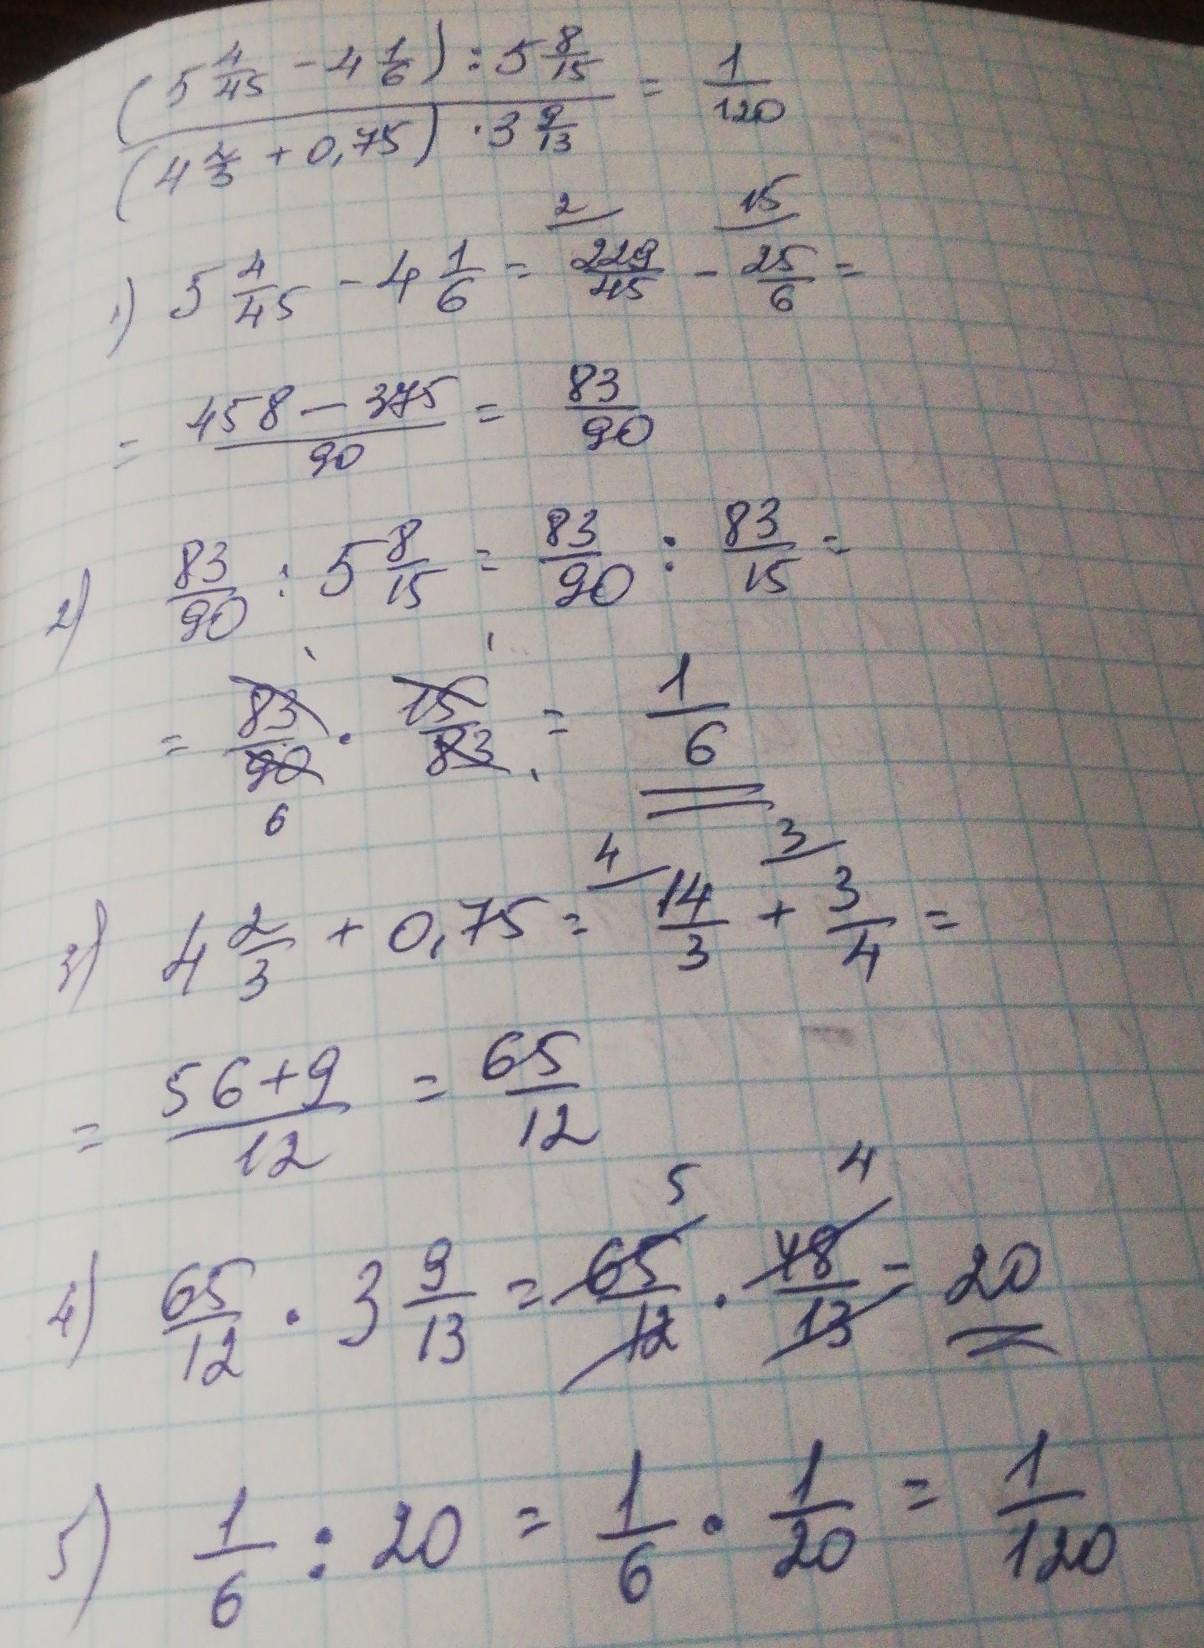 (5 4/45 - 4 1/6) : 5 8/15
(4 2/3 + 0,75) · 3 9/13 = 1/120
1) 5 4/45 - 4 1/6 = 2 229/45 - 15 25/6 =
= 458 - 375/90 = 83/90
2) 83/90 : 5 8/15 = 83/90 : 83/15 =
= 83/90 6 · 15/83 = 1/6
3) 4 2/3 + 0,75 = 4 14/3 + 3 3/4 =
= 56+9/12 = 65/12
4) 65/12 · 3 9/13 = 5 65/12 · 4 48/13 = 20
5) 1/6 : 20 = 1/6 · 1/20 = 1/120